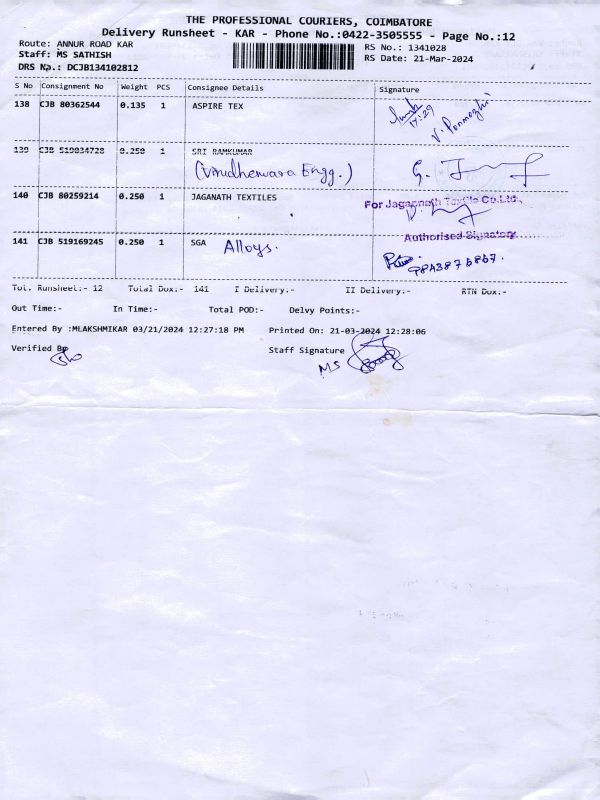 THE PROFESSIONAL COURIERS, COIMBATORE
Delivery Runsheet - KAR - Phone No.:0422-3505555 - Page No.:12
Route: ANNUR ROAD KAR
Staff: MS SATHISH
DRS No.: DCJB134102812
RS No.: 1341028
RS Date: 21-Mar-2024
S No Consignment No Weight PCS Consignee Details Signature
138 CJB 80362544 0.135 1 ASPIRE TEX
17:29
V. Ponmozhi
139 CJB 519034728 0.250 1 SRI RAMKUMAR
Engg.)
140 CJB 80259214 0.250 1 JAGANATH TEXTILES
For Jagannath Textile Co.Ltd.,
Authorised Signatory.
141 CJB 519169245 0.250 1 SGA Alloys.
Tot. Runsheet:- 12 Total Dox:- 141 I Delivery:- II Delivery:- RTN Dox:-
Out Time:- In Time:- Total POD:- Delvy Points:-
Entered By :MLAKSHMIKAR 03/21/2024 12:27:18 PM Printed On: 21-03-2024 12:28:06
Verified By Staff Signature
MS